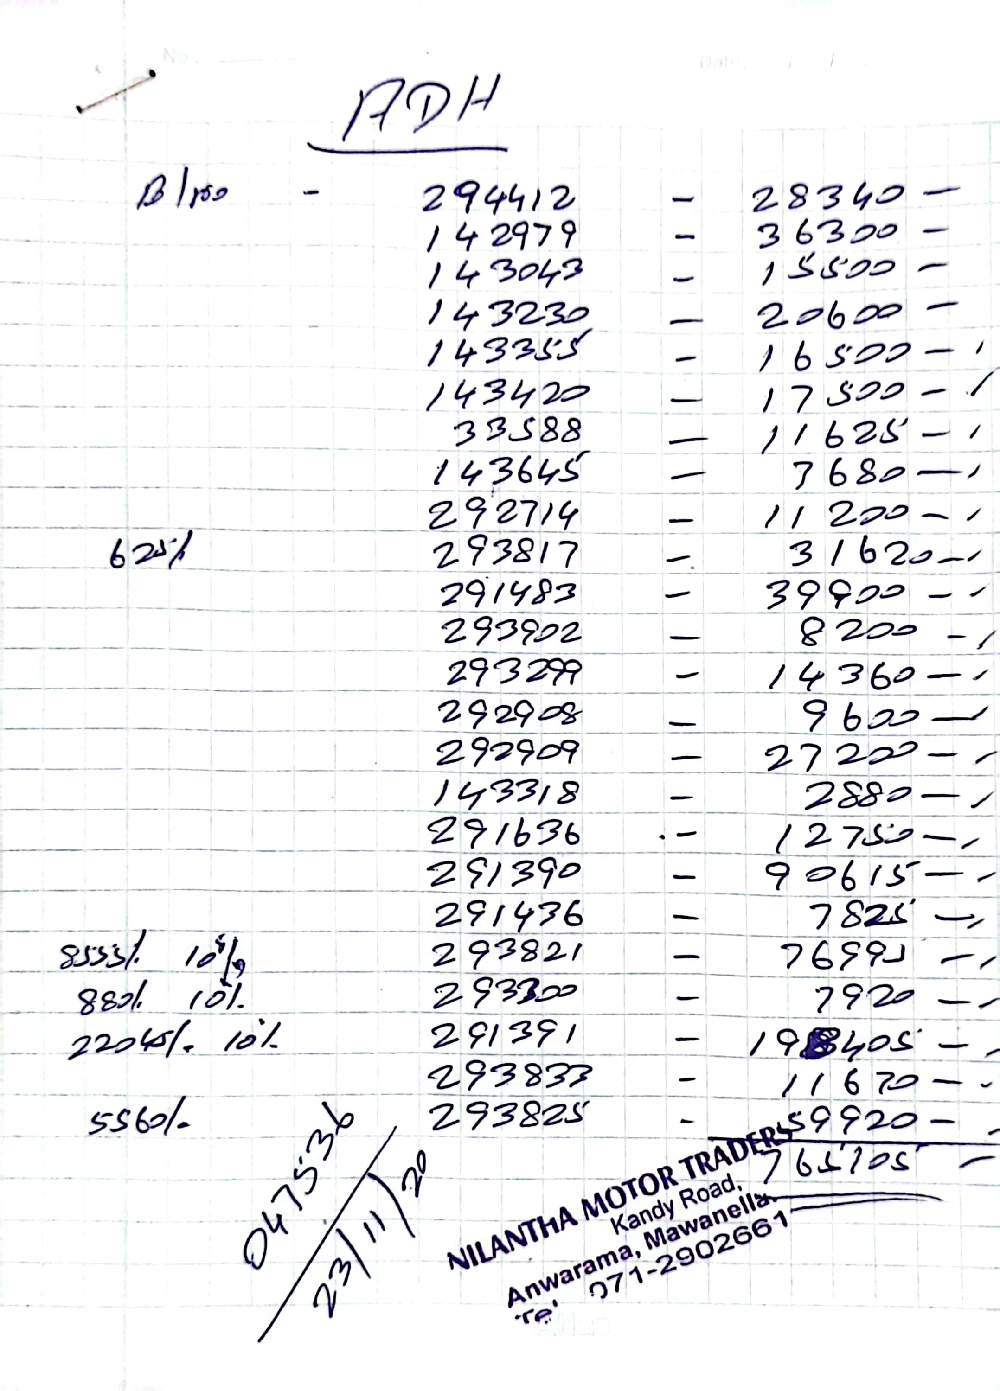 No.
Date
ADH
B/no - 294412 - 28340 -
142979 - 36300 -
143043 - 15500 -
143230 - 20600 -
143355 - 16500 -
143420 - 17500 -
33588 - 11625 -
143645 - 7680 -
292714 - 11200 -
625/. 293817 - 31620 -
291483 - 39900 -
293902 - 8200 -
293299 - 14360 -
292908 - 9600 -
292909 - 27200 -
143318 - 2880 -
291636 - 12750 -
291390 - 90615 -
291436 - 7825 -
8555/. 10% 293821 - 76995 -
880/. 10%. 293300 - 7920 -
22045/. 10%. 291391 - 198405 -
293833 - 11670 -
5560/- 293825 - 59920 -
765105 -
047536
23/11/20
NILANTHA MOTOR TRADERS
Kandy Road,
Anwarama, Mawanella.
Tel 071-2902661